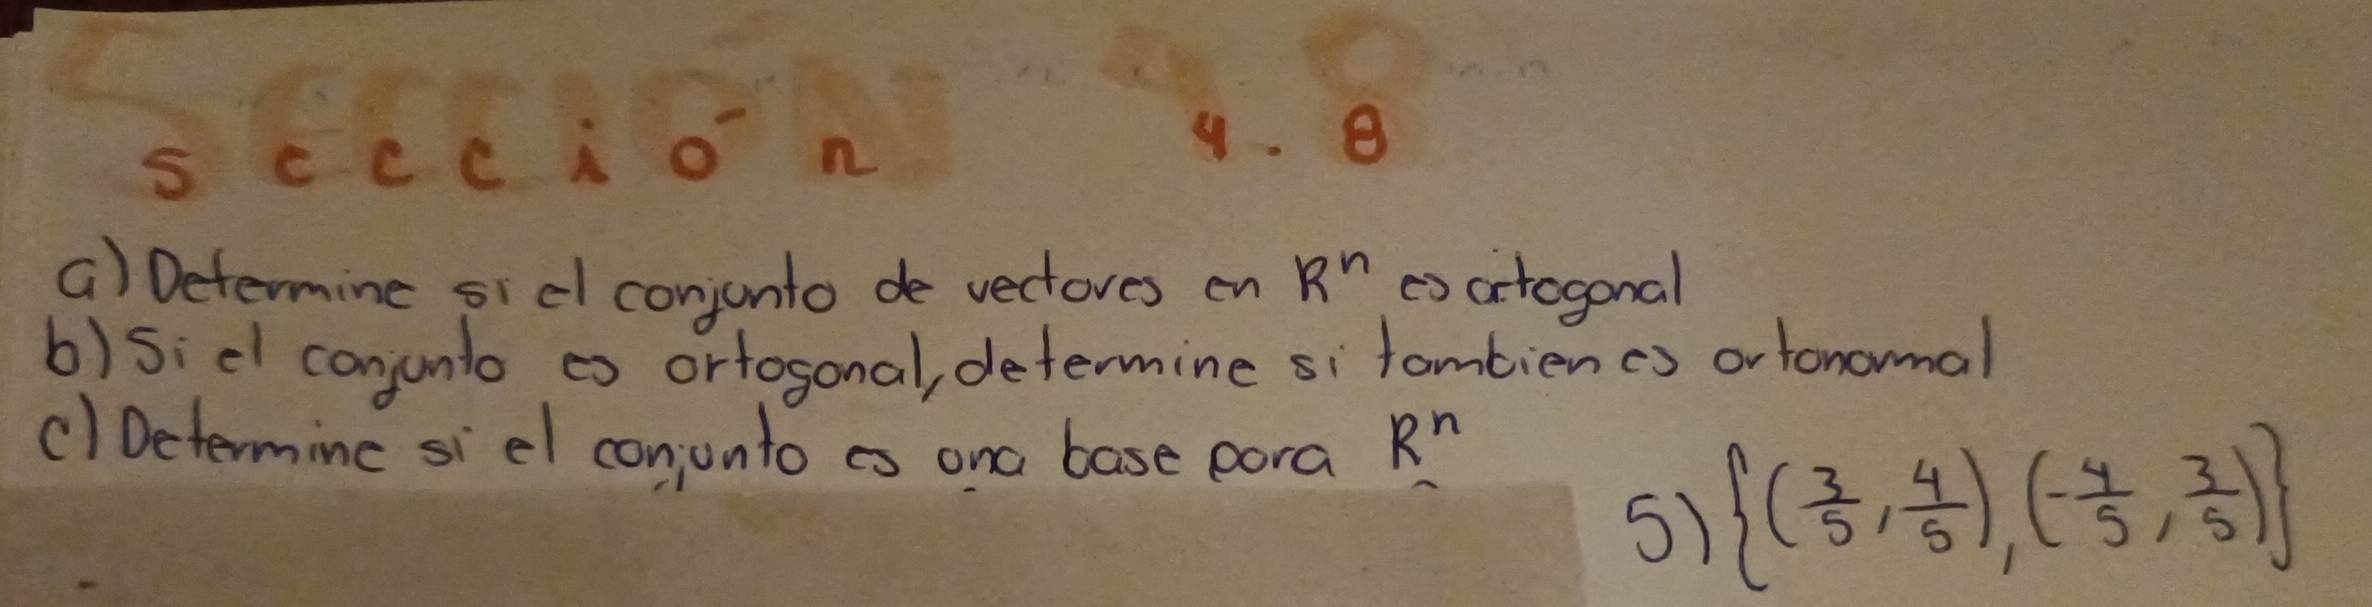 Sección 4.8
a) Determine si el conjunto de vectores en Rⁿ es ortogonal
b) Si el conjunto es ortogonal, determine si tambien es ortonormal
c) Determine si el conjunto es una base para Rⁿ
5) {(3/5, 4/5), (-4/5, 3/5)}